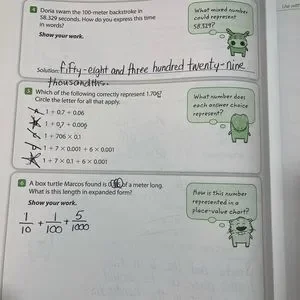 4 Doria swam the 100-meter backstroke in
58.329 seconds. How do you express this time
in words?
Show your work.
What mixed number
could represent
58.329?
Solution: fifty-eight and three hundred twenty-nine
thousandths.
5 Which of the following correctly represent 1.706?
Circle the letter for all that apply.
1 + 0.7 + 0.06
1 + 0.7 + 0.006
1 + 706 × 0.1
1 + 7 × 0.001 + 6 × 0.001
1 + 7 × 0.1 + 6 × 0.001
What number does
each answer choice
represent?
6 A box turtle Marcos found is of a meter long.
What is this length in expanded form?
Show your work.
How is this number
represented in a
place-value chart?
1/10 + 1/100 + 5/1000